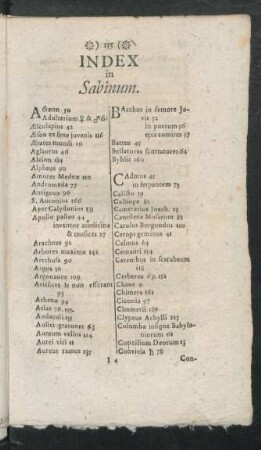 ) 135 (
INDEX
in
Sabinum.
Actæon 50
Adulterium ♀ & ♂ 61
Æsculapius 42
Æson ex sene juvenis 116
Ætates mundi 10
Aglaurus 46
Alcion 184
Alpheus 90
Amores Medeæ 110
Andromeda 77
Antigone 96
S. Antonius 166
Aper Calydonius 130
Apollo pastor 44
inventor medicinæ
& musices 27
Arachnes 91
Arbores maximæ 142
Arethusa 90
Argus 31
Argonautæ 109
Artifices se non efferant
93
Athenæ 94
Atlas 76.
Audaculi
Aulici gratiores 63
Aureum vellus 114
Aurei viri 11
Aureus ramus 237
Bacchus in femore Jo-
vis 52
in puerum 56
ejus comites 57
Battus 45
Bellatores sternutores 64
Byblis 160
Cadmus 41
in serpentem 73
Calisto 39
Calliope 81
Camerarius Joach. 15
Canentes Musæum 81
Carolus Burgundus 110
Cecrops geminus 41
Celmus 64
Centauri 214
Cerambus in scarabæum
112
Cerberus 69, 152
Chaos 4
Chimæra 161
Ciconia 97
Cimmerii 189
Clypeus Achyllis 223
Columba insigne Babylo-
niorum 61
Concilium Deorum 13
Convivia ♄ 78
I 4
Con-